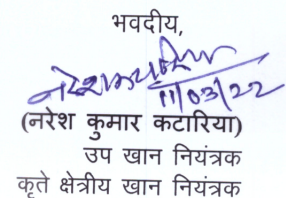 भवदीय,
11/03/22
(नरेश कुमार कटारिया)
उप खान नियंत्रक
कृते क्षेत्रीय खान नियंत्रक